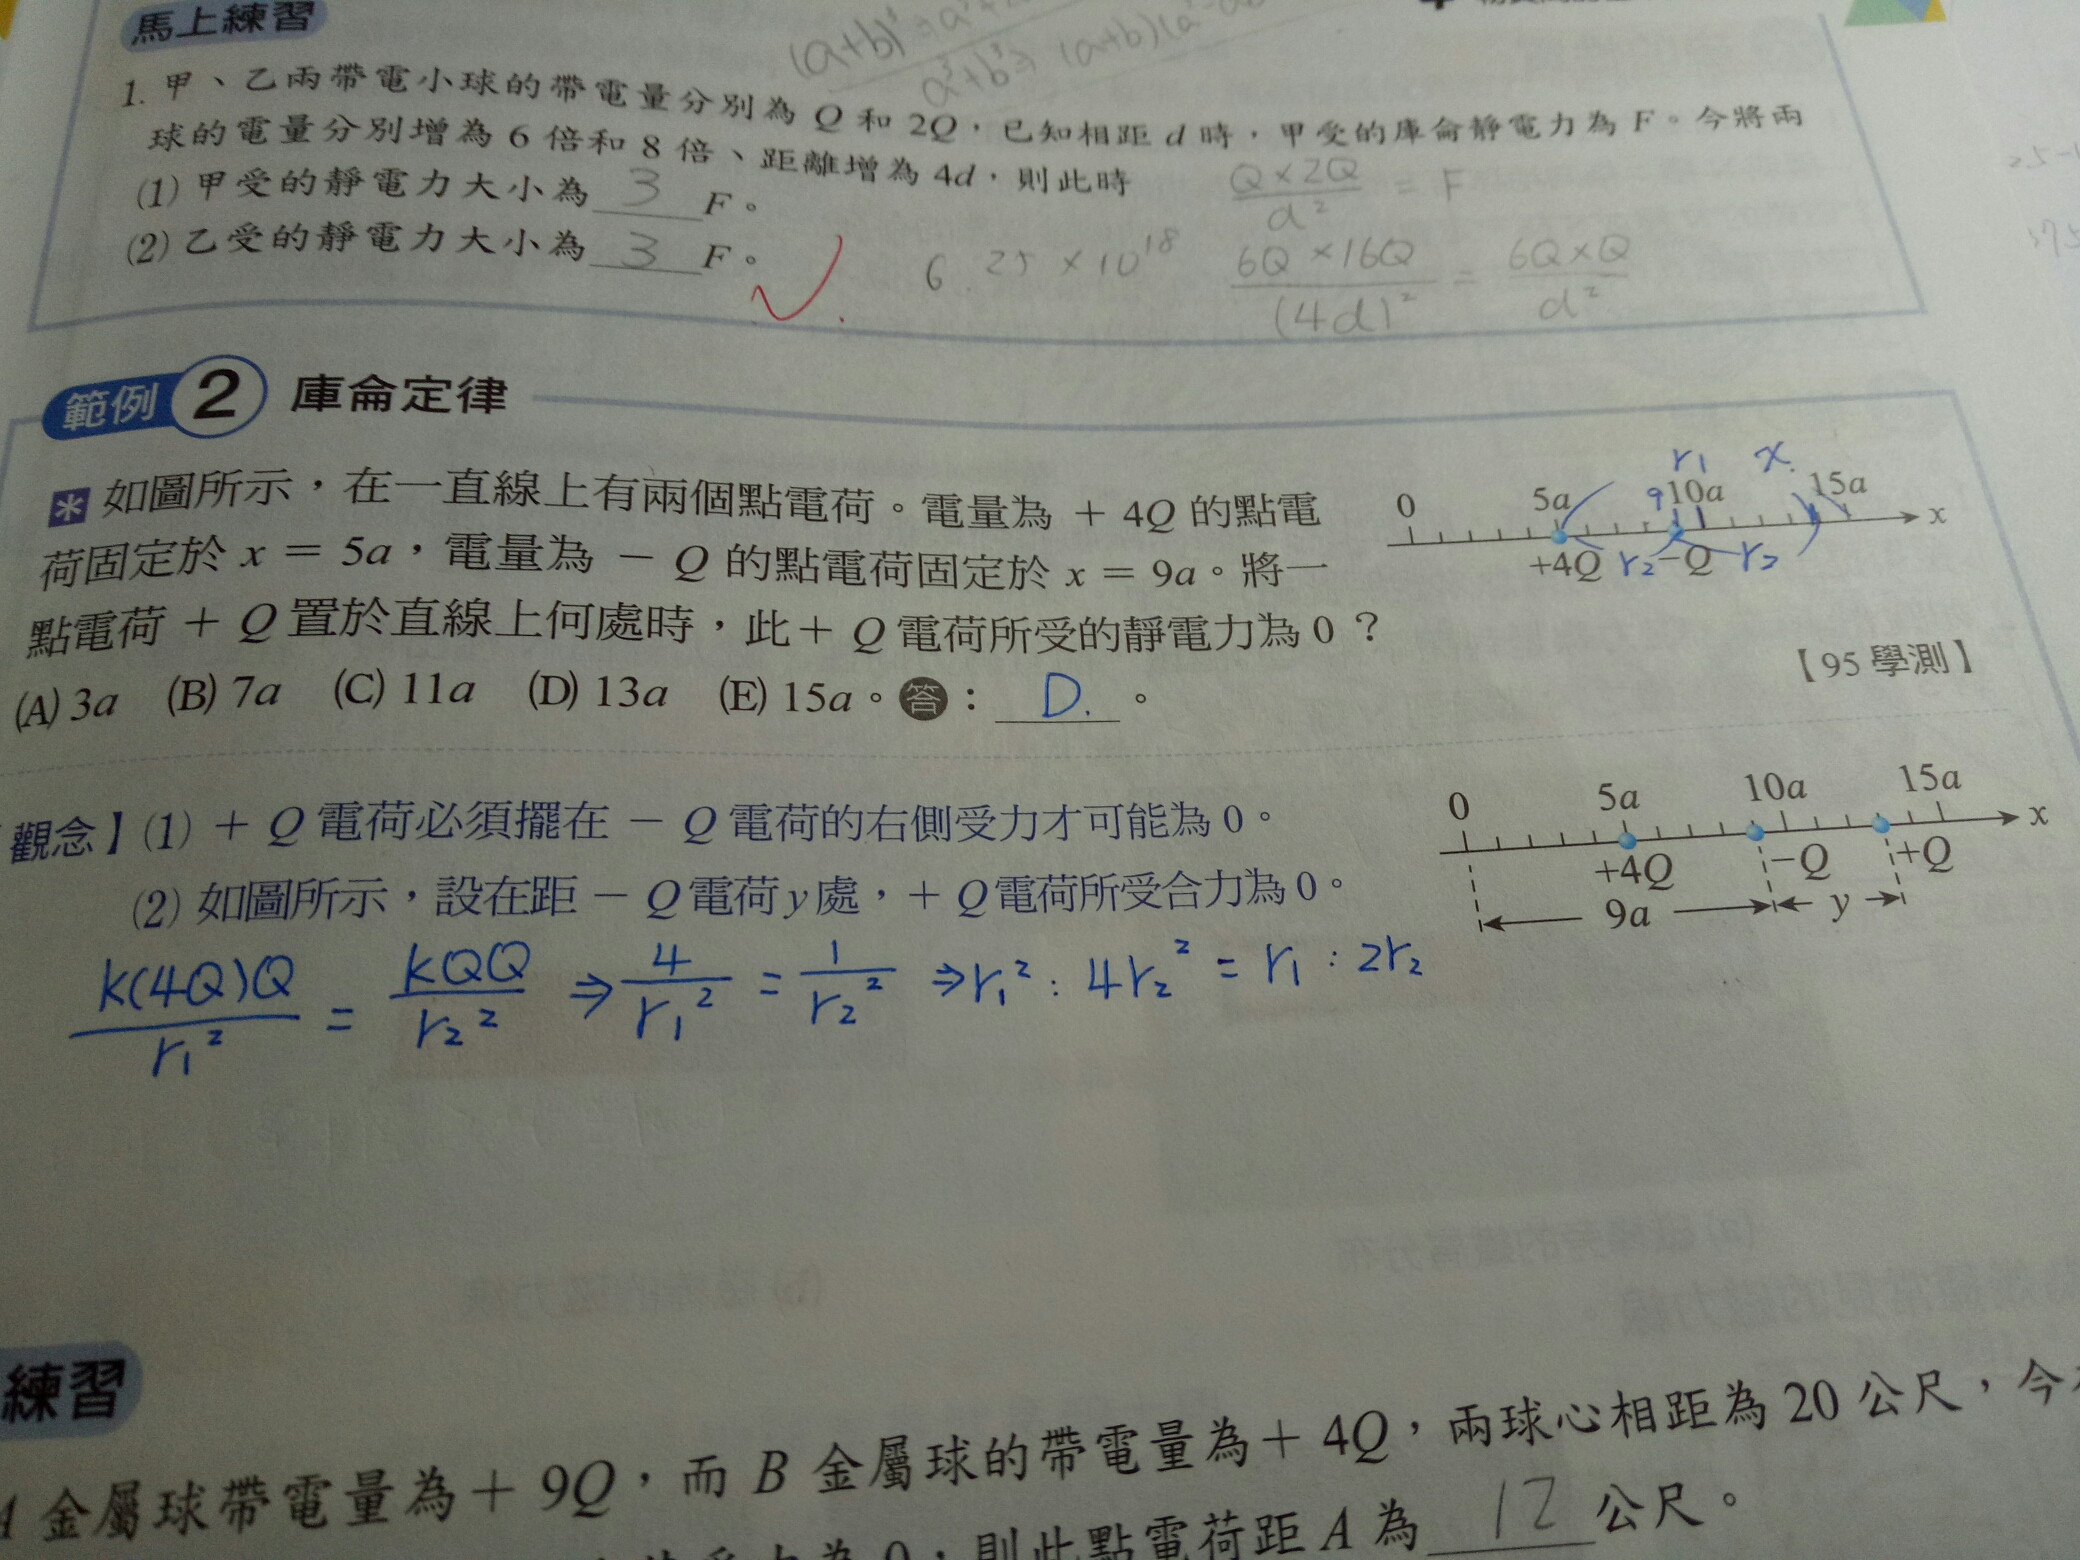 馬上練習
(a+b)³
a³+b³⇒(a+b)(a²-ab
1. 甲、乙兩帶電小球的帶電量分別為 Q 和 2Q，已知相距 d 時，甲受的庫侖靜電力為 F。今將兩
球的電量分別增為 6 倍和 8 倍、距離增為 4d，則此時
(1) 甲受的靜電力大小為 3 F。
Q×2Q/d² = F
(2) 乙受的靜電力大小為 3 F。
6.25×10¹⁸
6Q×16Q/(4d)² = 6Q×Q/d²
範例 2 庫侖定律
* 如圖所示，在一直線上有兩個點電荷。電量為 ＋ 4Q 的點電
荷固定於 x = 5a，電量為 － Q 的點電荷固定於 x = 9a。將一
點電荷 ＋ Q 置於直線上何處時，此＋ Q 電荷所受的靜電力為 0 ？
【95 學測】
(A) 3a (B) 7a (C) 11a (D) 13a (E) 15a。答：D.。
r₁ x.
0 5a 9 10a 15a x
+4Q r₂ −Q r₂
觀念】(1) ＋ Q 電荷必須擺在 － Q 電荷的右側受力才可能為 0。
(2) 如圖所示，設在距 － Q 電荷 y 處，＋ Q 電荷所受合力為 0。
0 5a 10a 15a x
+4Q −Q +Q
9a y
k(4Q)Q/r₁² = kQQ/r₂² ⇒ 4/r₁² = 1/r₂² ⇒ r₁² : 4r₂² = r₁ : 2r₂
練習
金屬球帶電量為＋ 9Q，而 B 金屬球的帶電量為＋ 4Q，兩球心相距為 20 公尺，今
為 0，則此點電荷距 A 為 12 公尺。